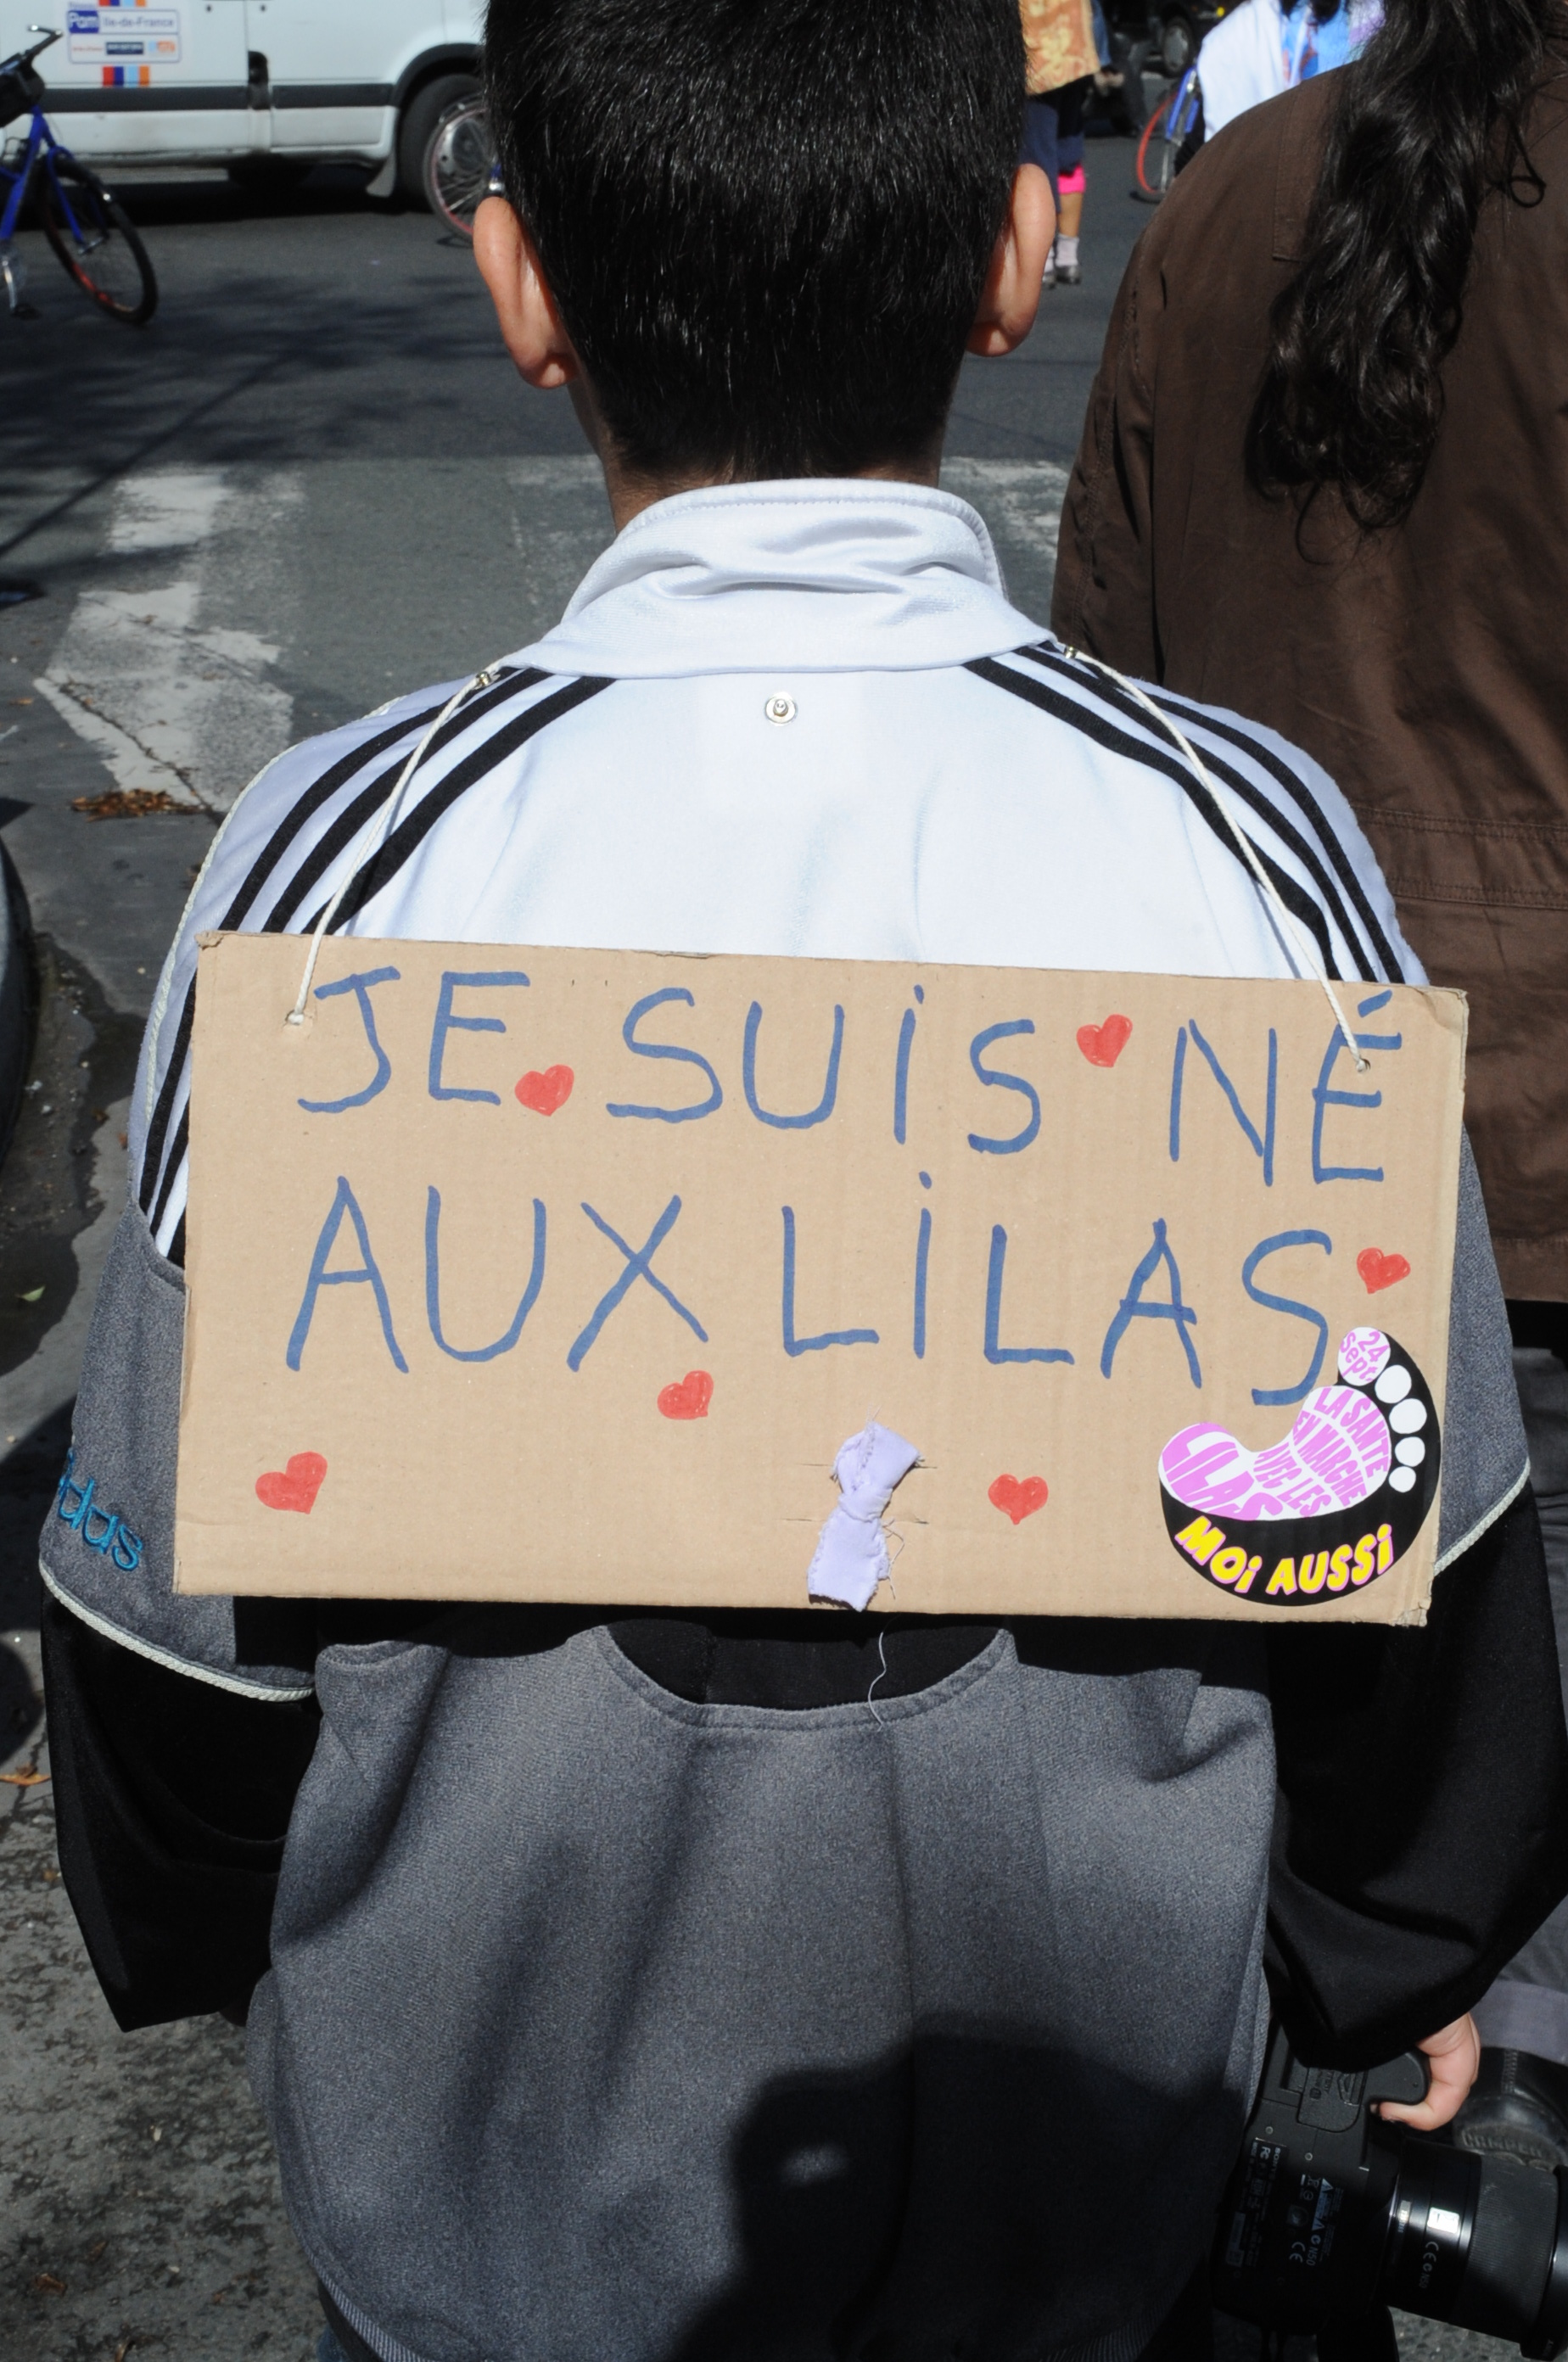 Pam Ile-de-France
JE SUIS NÉ
AUX LILAS
24
Sept.
LA SANTE
EN MARCHE
AVEC LES
LILAS
MOI AUSSI